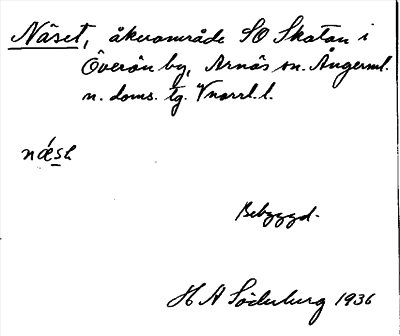 Näset, åkerområde SO Skatan i
Överön by, Arnäs sn. Ångerml.
n. doms. tg. Vnorrl. l.
nǽsɛ
Bebyggd.
H A Söderberg 1936